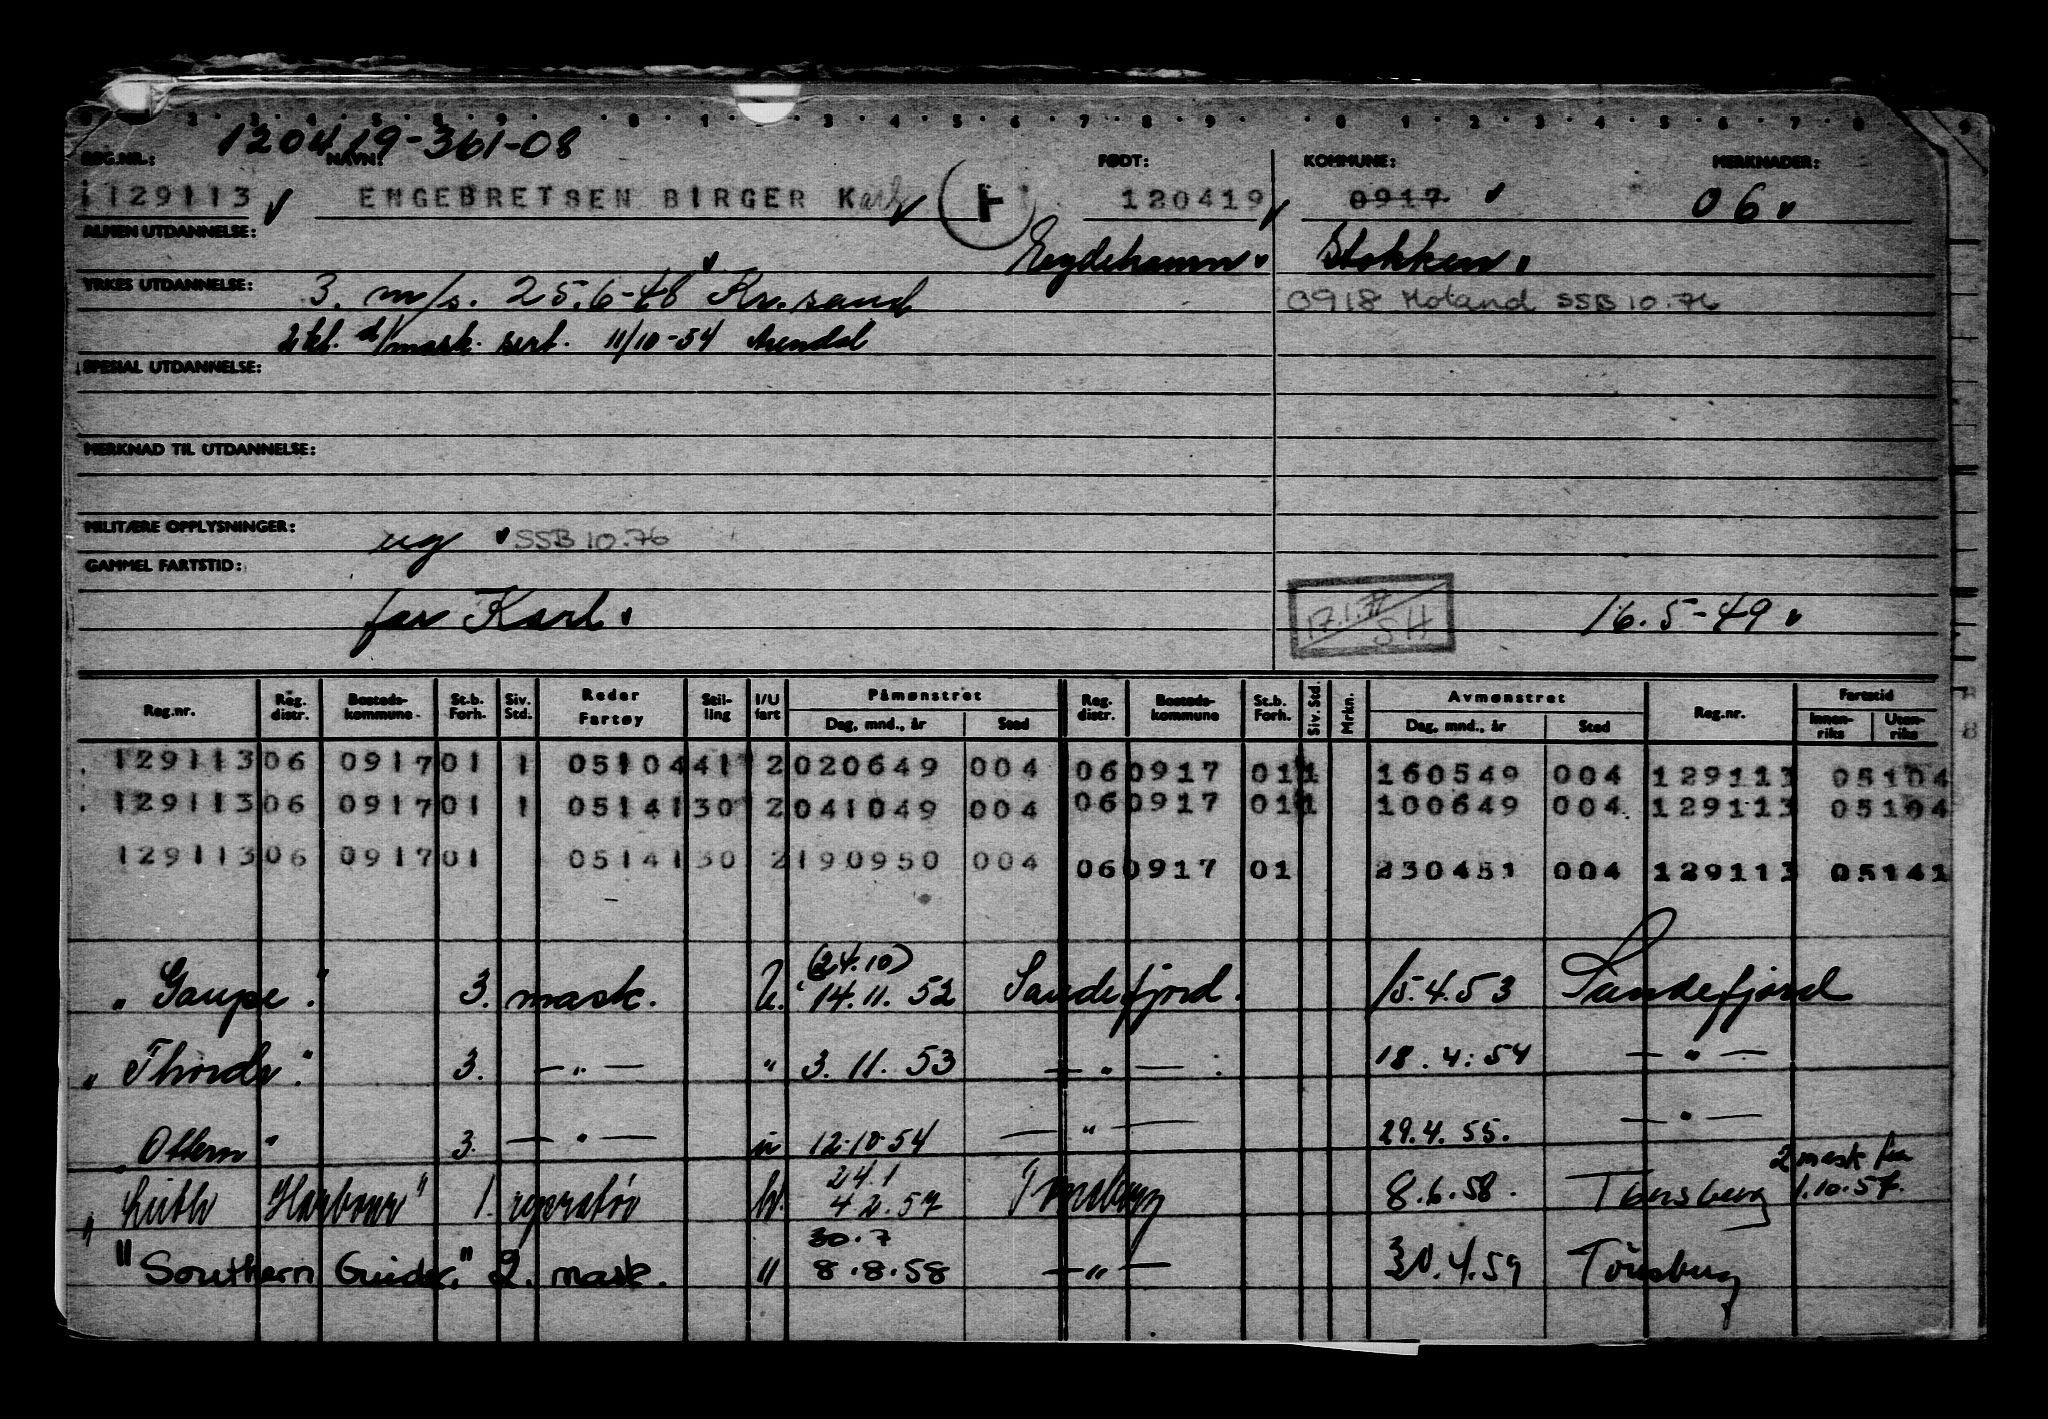 120419-361-08
REG.NR.: NAVN: FØDT: KOMMUNE: MERKNADER:
129113 ENGEBRETSEN BIRGER Karl H 120419 0917 06
ALMEN UTDANNELSE: Eydehamn Stokken
YRKES UTDANNELSE: 3. m/s. 25.6-48 Kr.sand 0918 Moland SSB 10.76
2 kl. d/mask. sert. 11/10-54 Arendal
SPESIAL UTDANNELSE:
MERKNAD TIL UTDANNELSE:
MILITÆRE OPPLYSNINGER: ug SSB 10.76
GAMMEL FARTSTID:
far Karl 17.1.77 SH 16.5-49
Reg.nr. Reg. distr. Bosteds-kommune St.b. Forh. Siv. Std. Reder Fartøy Stil-ling I/U fart Påmønstret Dag, mnd., år Sted Reg. distr. Bosteds-kommune St.b. Forh. Siv. Std. Mrkn. Avmønstret Dag, mnd., år Sted Reg.nr. Fartstid Innen-riks Uten-riks
129113 06 0917 01 1 05104 41 2 020649 004 06 0917 01 1 160549 004 129113 05104
129113 06 0917 01 1 05141 30 2 041049 004 06 0917 01 1 100649 004 129113 05104
129113 06 0917 01 05141 30 2 190950 004 06 0917 01 230451 004 129113 05141
(24.10)
"Gaupe." 3. mask. U. 14.11.52 Sandefjord. 15.4.53 Sandefjord
"Thordr." 3. —"— " 3.11.53 —"— 18.4.54 —"—
"Ottern" 3. —"— u 12.10.54 —"— 29.4.55. —"—
24.1 2 mask fra
"Leith Harbour" 1. 4.2.57 Tønsberg 8.6.58. Tønsberg 1.10.57.
30.7
"Southern Guider." 2. mask. " 8.8.58 —"— 30.4.59 Tönsberg